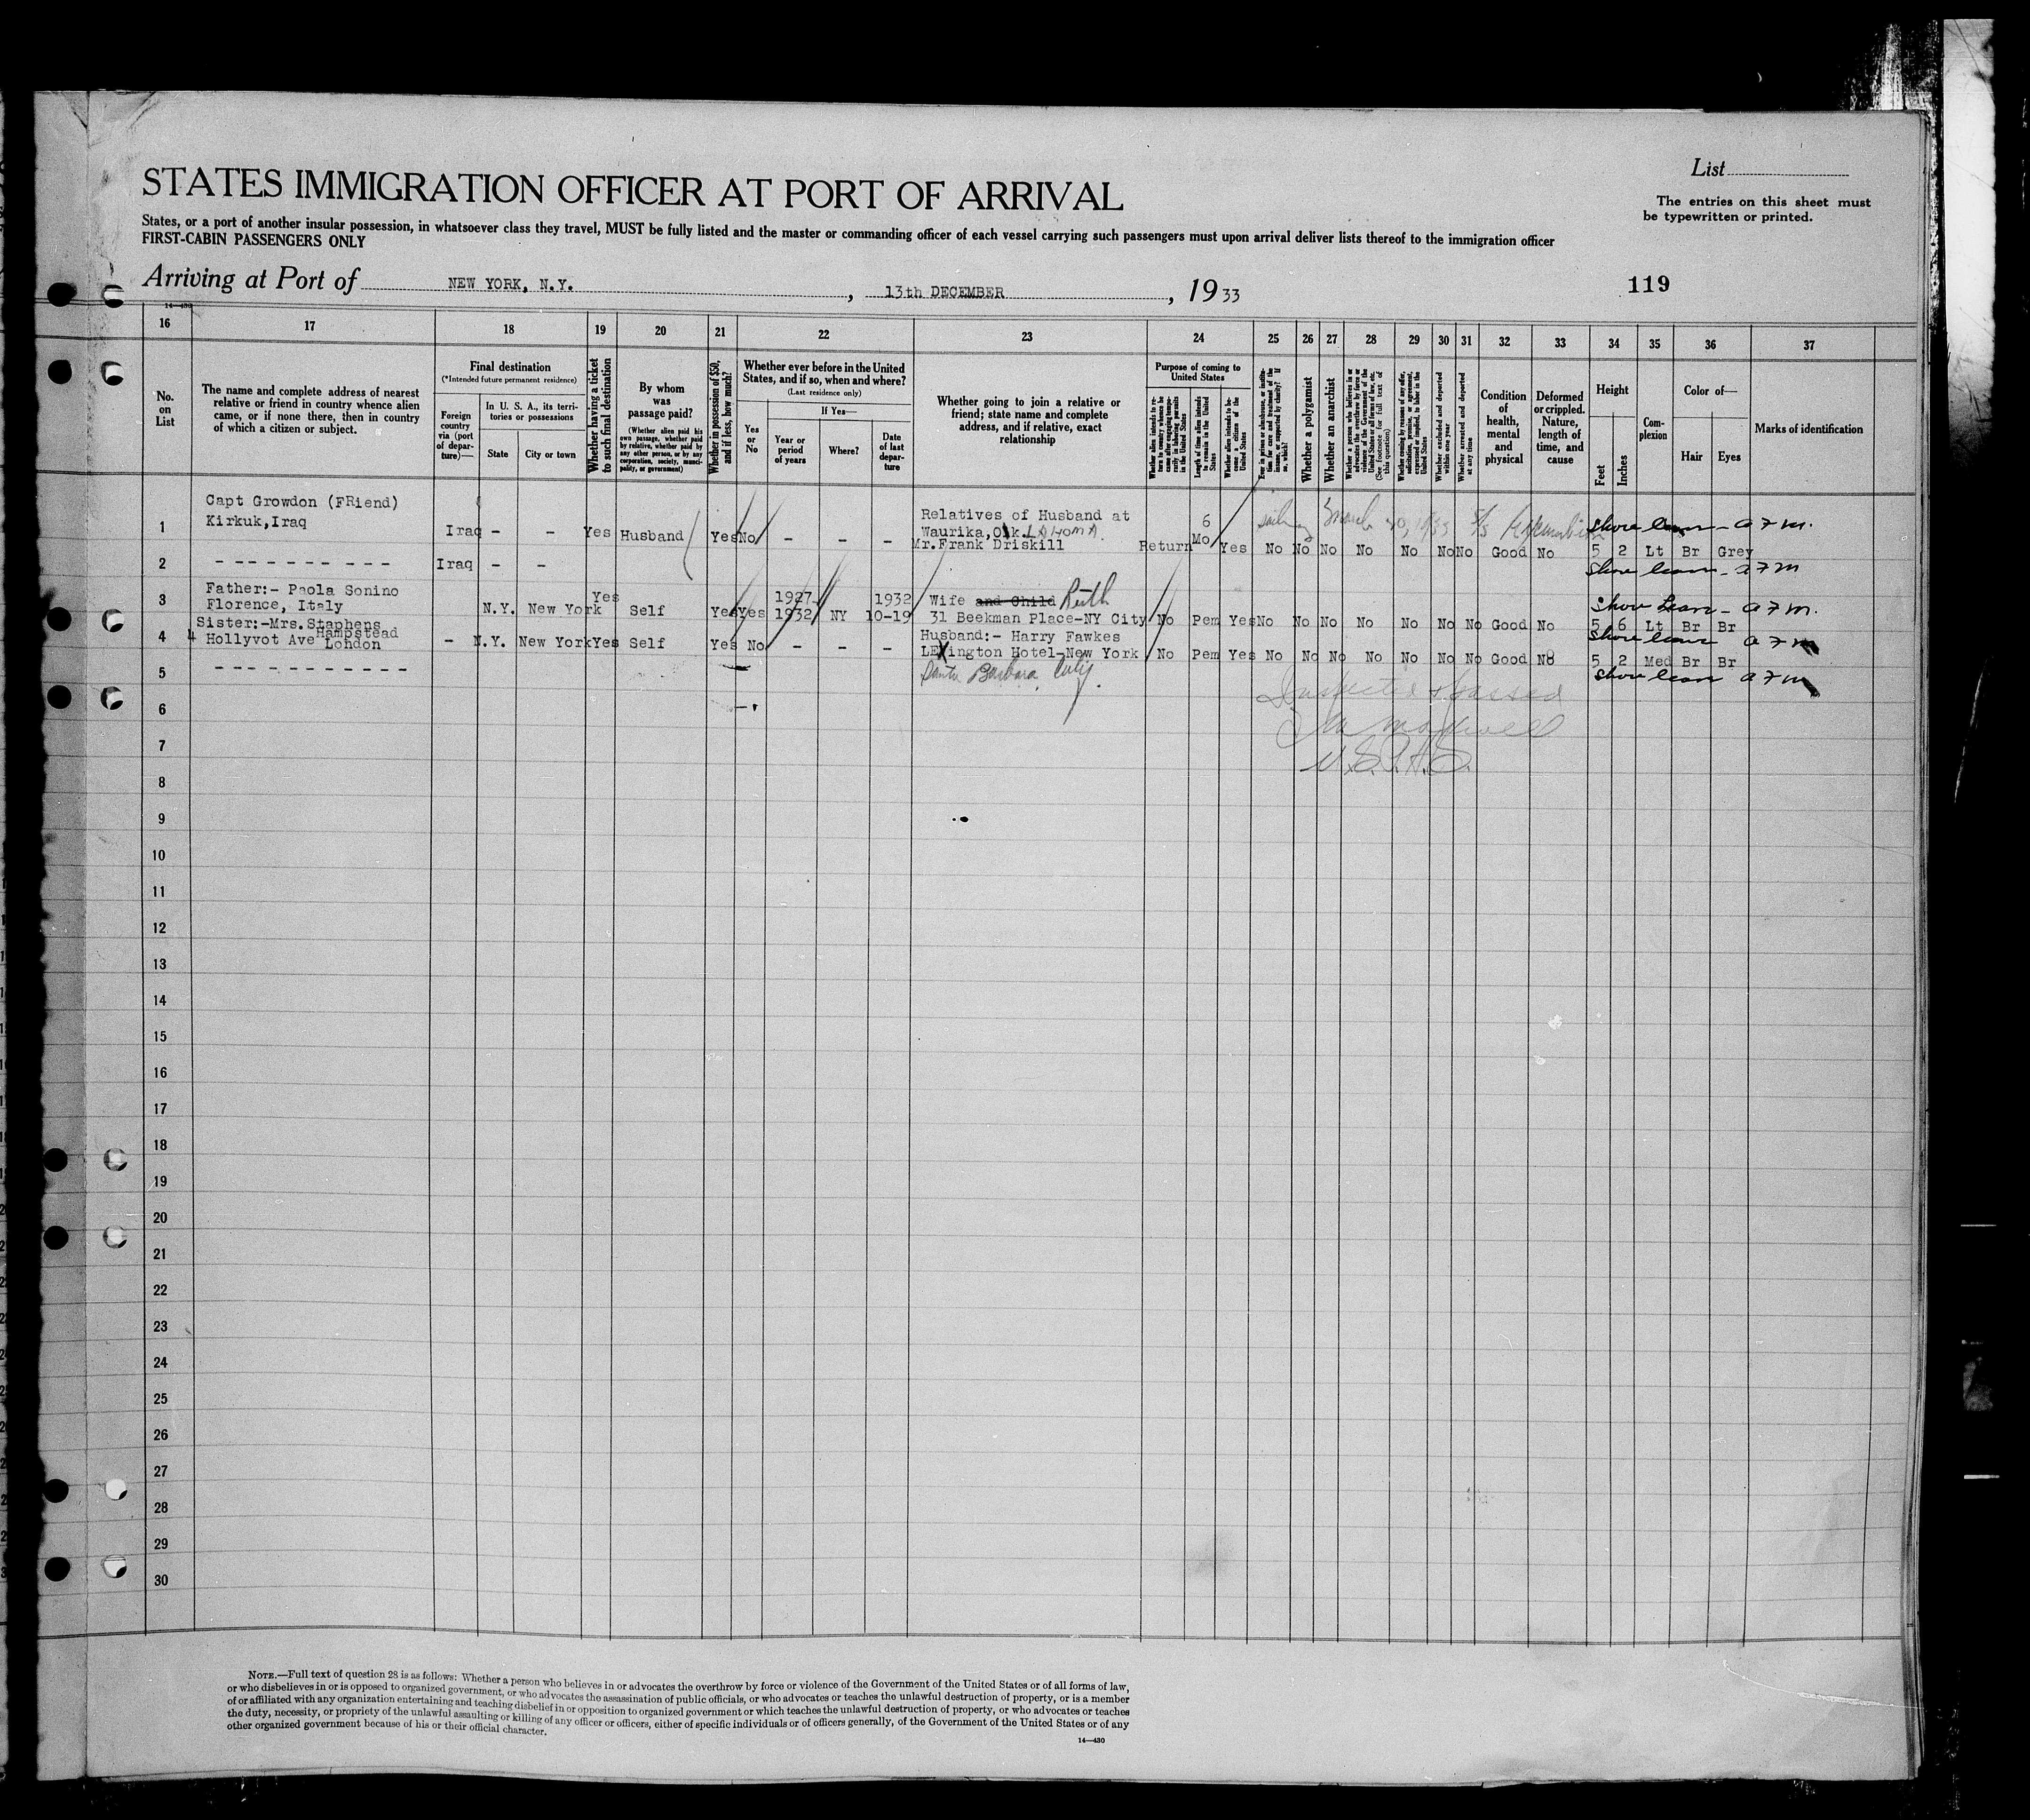 List
STATES IMMIGRATION OFFICER AT PORT OF ARRIVAL
The entries on this sheet must
be typewritten or printed.
States, or a port of another insular possession, in whatsoever class they travel, MUST be fully listed and the master or commanding officer of each vessel carrying such passengers must upon arrival deliver lists thereof to the immigration officer
FIRST-CABIN PASSENGERS ONLY
Arriving at Port of NEW YORK, N.Y. , 13th DECEMBER , 1933
119
14—430
16 17 18 19 20 21 22 23 24 25 26 27 28 29 30 31 32 33 34 35 36 37
No. on List
The name and complete address of nearest
relative or friend in country whence alien
came, or if none there, then in country
of which a citizen or subject.
Final destination
(*Intended future permanent residence)
Foreign country via (port of departure)—
In U. S. A., its territories or possessions
State
City or town
Whether having a ticket to such final destination
By whom was passage paid?
(Whether alien paid his own passage, whether paid by relative, whether paid by any other person, or by any corporation, society, municipality, or government)
Whether in possession of $50, and if less, how much?
Whether ever before in the United
States, and if so, when and where?
(Last residence only)
Yes or No
If Yes—
Year or period of years
Where?
Date of last departure
Whether going to join a relative or
friend; state name and complete
address, and if relative, exact
relationship
Purpose of coming to United States
Length of time alien intends to remain in the United States
Whether alien intends to become a citizen of the United States
Whether a polygamist
Whether an anarchist
(See footnote for full text of this question)
Whether excluded and deported within one year
Whether arrested and deported at any time
Condition of health, mental and physical
Deformed or crippled. Nature, length of time, and cause
Height
Feet
Inches
Complexion
Color of—
Hair
Eyes
Marks of identification
1 Capt Growdon (FRiend)
Kirkuk,Iraq
Iraq - - Yes Husband Yes No - - -
Relatives of Husband at
Waurika,Ok.LAHOMA.
Mr.Frank Driskill
Return 6 Mo Yes No No No No No No No Good No 5 2 Lt Br Grey
Shore leave - a7m.
2 - - - - - - - - - - Iraq - -
Shore leave - a7m
3 Father:- Paola Sonino
Florence, Italy
N.Y. New York Yes Self Yes Yes 1927 1932 NY 1932 10-19
Wife and Child Ruth
31 Beekman Place-NY City
No Pem Yes No No No No No No No Good No 5 6 Lt Br Br
Shore leave - a7m.
4 Sister:-Mrs.Staphens
4 Hollyvot Ave Hampstead
London
- N.Y. New York Yes Self Yes No - - -
Husband:- Harry Fawkes
LEXington Hotel-New York
No Pem Yes No No No No No No No Good No 5 2 Med Br Br
Shore leave a7m
5 - - - - - - - - - - -
Santa Barbara Calif.
Shore leave a7m
Inspected & passed
Maxwell
U.S.P.H.S.
6
7
8
9
10
11
12
13
14
15
16
17
18
19
20
21
22
23
24
25
26
27
28
29
30
NOTE.—Full text of question 28 is as follows: Whether a person who believes in or advocates the overthrow by force or violence of the Government of the United States or of all forms of law,
or who disbelieves in or is opposed to organized government, or who advocates the assassination of public officials, or who advocates or teaches the unlawful destruction of property, or is a member
of or affiliated with any organization entertaining and teaching disbelief in or opposition to organized government or which teaches the unlawful destruction of property, or who advocates or teaches
the duty, necessity, or propriety of the unlawful assaulting or killing of any officer or officers, either of specific individuals or of officers generally, of the Government of the United States or of any
other organized government because of his or their official character.
14—430